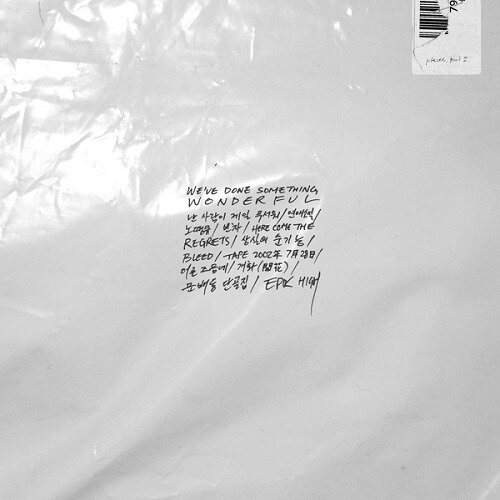 79
pieces, part II
WE'VE DONE SOMETHING
WONDERFUL
난 사람이 제일 무서워/연애소설/
노땡큐/빈차/HERE COME THE
REGRETS/상실의 순기능/
BLEED/TAPE 2002年 7月 28日/
어른 즈음에/개화(開花)/
문배동 단골집/EPIK HIGH